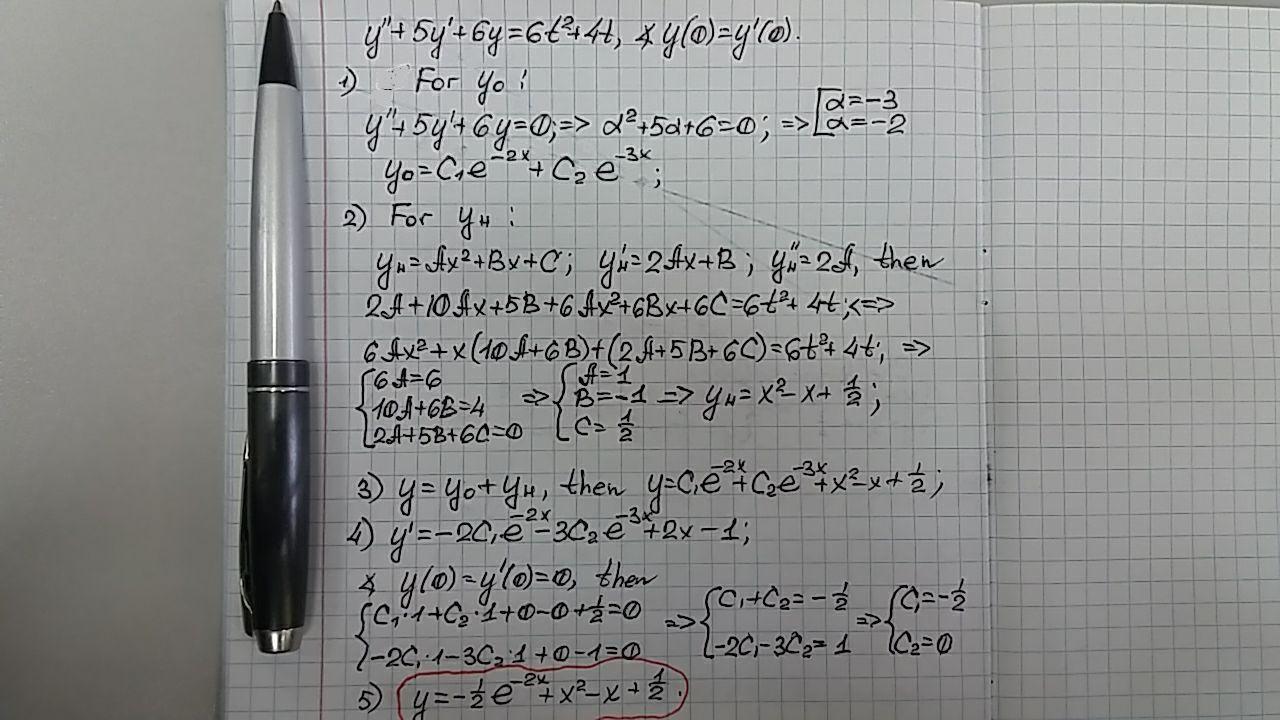 y''+5y'+6y=6t²+4t, ∢ y(0)=y'(0).
1) For y₀:
y''+5y'+6y=0; => α²+5α+6=0; => [α=-3 α=-2
y₀=C₁e^(-2x)+C₂e^(-3x);
2) For yн:
yн=Ax²+Bx+C; yн'=2Ax+B; yн''=2A, then
2A+10Ax+5B+6Ax²+6Bx+6C=6t²+4t; <=>
6Ax²+x(10A+6B)+(2A+5B+6C)=6t²+4t; =>
{6A=6 10A+6B=4 2A+5B+6C=0 => {A=1 B=-1 C=1/2 => yн=x²-x+1/2;
3) y=y₀+yн, then y=C₁e^(-2x)+C₂e^(-3x)+x²-x+1/2;
4) y'=-2C₁e^(-2x)-3C₂e^(-3x)+2x-1;
∢ y(0)=y'(0)=0, then
{C₁·1+C₂·1+0-0+1/2=0 -2C₁·1-3C₂·1+0-1=0 => {C₁+C₂=-1/2 -2C₁-3C₂=1 => {C₁=-1/2 C₂=0
5) y=-1/2e^(-2x)+x²-x+1/2.